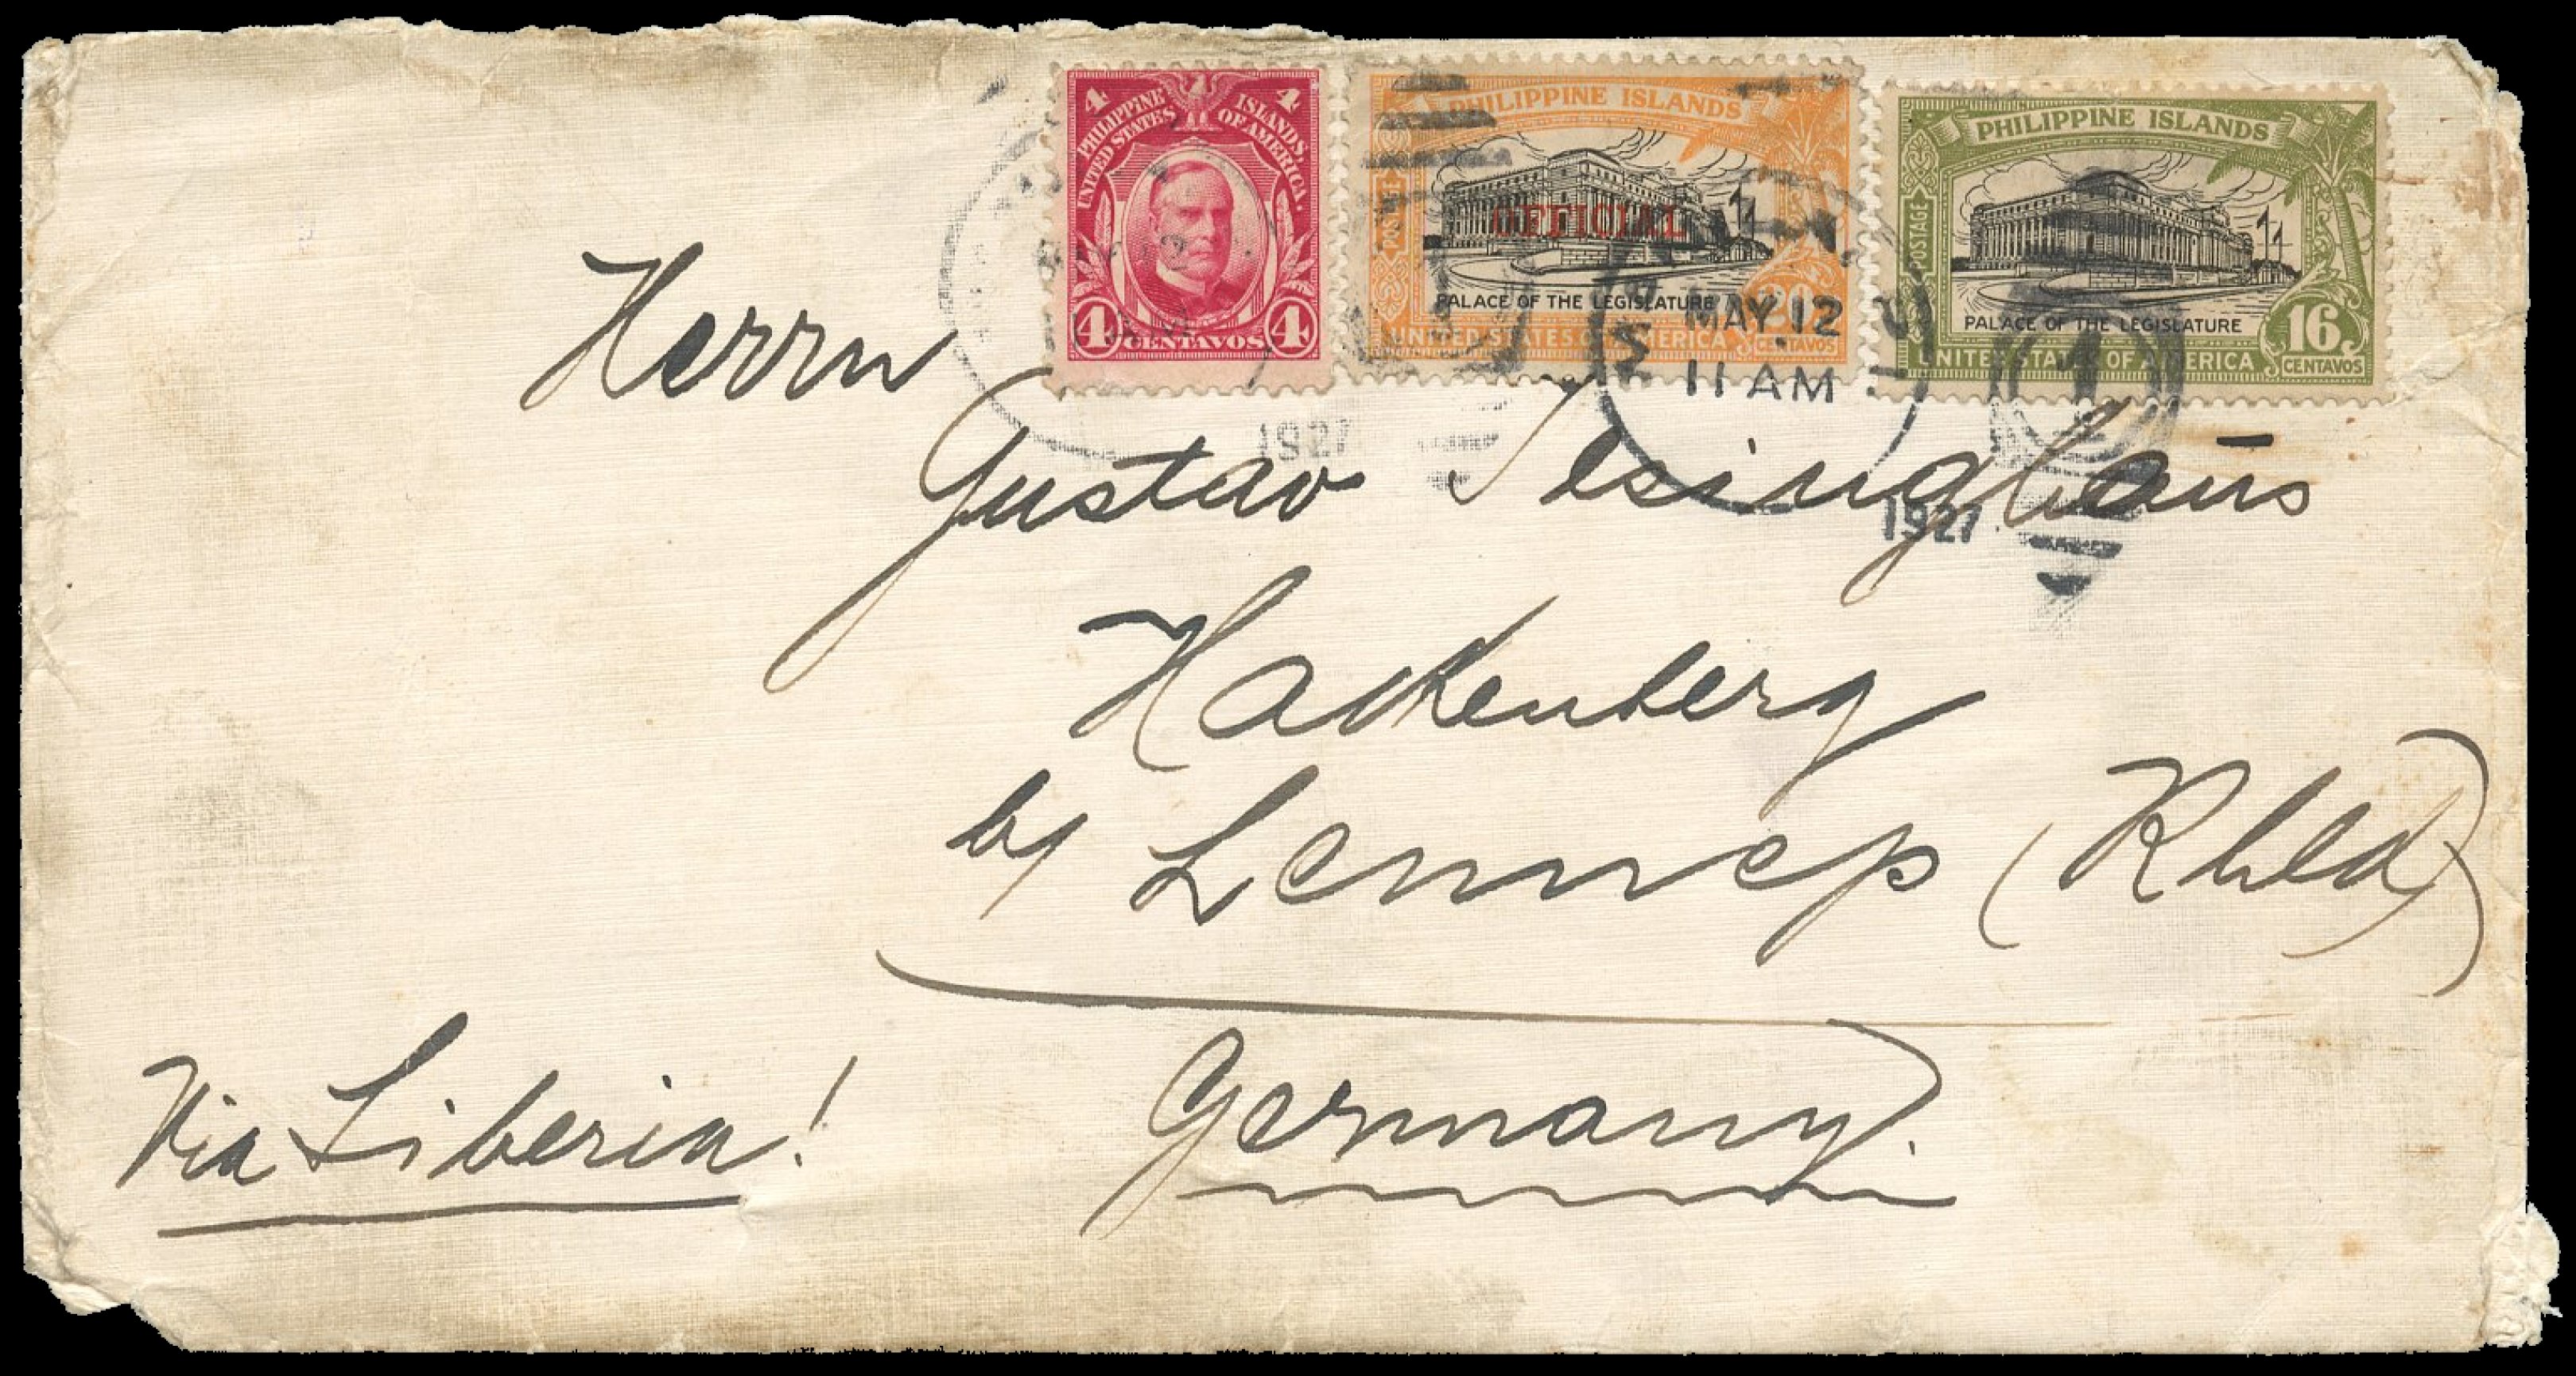 4 4
PHILIPPINE ISLANDS,
UNITED STATES OF AMERICA.
4 CENTAVOS 4
PHILIPPINE ISLANDS
POSTAGE
OFFICIAL
PALACE OF THE LEGISLATURE
UNITED STATES OF AMERICA
20 CENTAVOS
PHILIPPINE ISLANDS
POSTAGE
PALACE OF THE LEGISLATURE
UNITED STATES OF AMERICA
16 CENTAVOS
MAY 12
11 AM
1927
1
1927
Herrn
Gustav
Hackenberg
by Lennep (Rhld)
Germany.
Via Liberia!